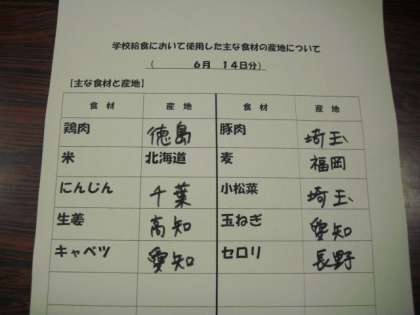 学校給食において使用した主な食材の産地について
（　　　６月　１４日分）
[主な食材と産地]
食材　産地　食材　産地
鶏肉　徳島　豚肉　埼玉
米　北海道　麦　福岡
にんじん　千葉　小松菜　埼玉
生姜　高知　玉ねぎ　愛知
キャベツ　愛知　セロリ　長野